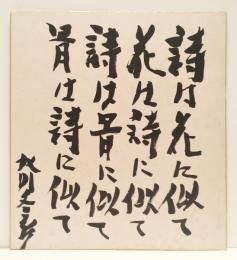 詩は花に似て
花は詩に似て
詩は骨に似て
骨は詩に似て